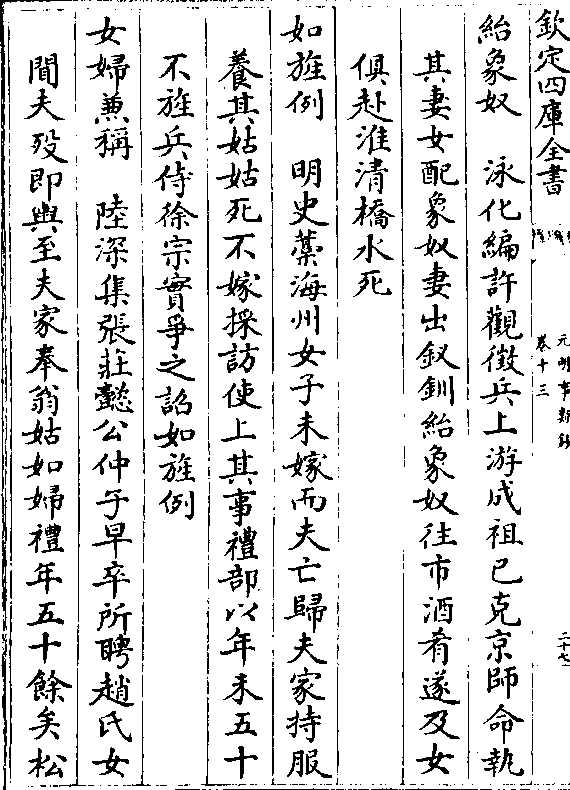 欽定四庫全書
元明事類鈔
卷十三
二十七
紿象奴　泳化編許觀徴兵上游成祖已克京師命執
其妻女配象奴妻出釵釧紿象奴往市酒肴遂及女
俱赴淮清橋水死
如旌例　明史藁海州女子未嫁而夫亡歸夫家持服
養其姑姑死不嫁採訪使上其事禮部以年未五十
不旌兵侍徐宗實爭之詔如旌例
女婦兼稱　陸深集張莊懿公仲子早卒所聘趙氏女
聞夫殁即輿至夫家奉翁姑如婦禮年五十餘矣松